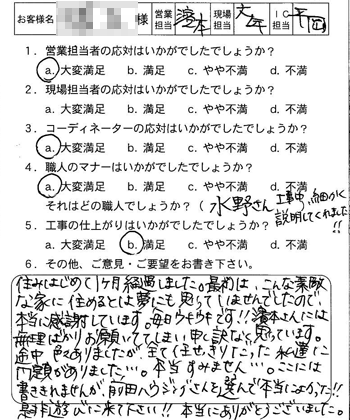 お客様名 様 営業担当 濱本 現場担当 IC担当
1. 営業担当者の応対はいかがでしたでしょうか?
a. 大変満足 b. 満足 c. やや不満 d. 不満
2. 現場担当者の応対はいかがでしたでしょうか?
a. 大変満足 b. 満足 c. やや不満 d. 不満
3. コーディネーターの応対はいかがでしたでしょうか?
a. 大変満足 b. 満足 c. やや不満 d. 不満
4. 職人のマナーはいかがでしたでしょうか?
a. 大変満足 b. 満足 c. やや不満 d. 不満
それはどの職人でしょうか? ( 水野さん 工事中、細かく
説明してくれました!!
5. 工事の仕上がりはいかがでしたでしょうか?
a. 大変満足 b. 満足 c. やや不満 d. 不満
6. その他、ご意見・ご要望をお書き下さい。
住みはじめて1ヶ月経過しました。最初は、こんな素敵
な家に住めるとは夢にも思っていませんでしたので
本当に感謝しています。毎日ウキウキです!!濱本さんには
無理ばかりお願いしてしまい申し訳なく思っています。
途中 色々ありましたが、全て任せっきりだった私達に
問題がありました…。本当すみません…。ここには
書ききれませんが、前田ハウジングさんを選んで本当によかった!!
是非遊びに来て下さい!! 本当にありがとうございました。